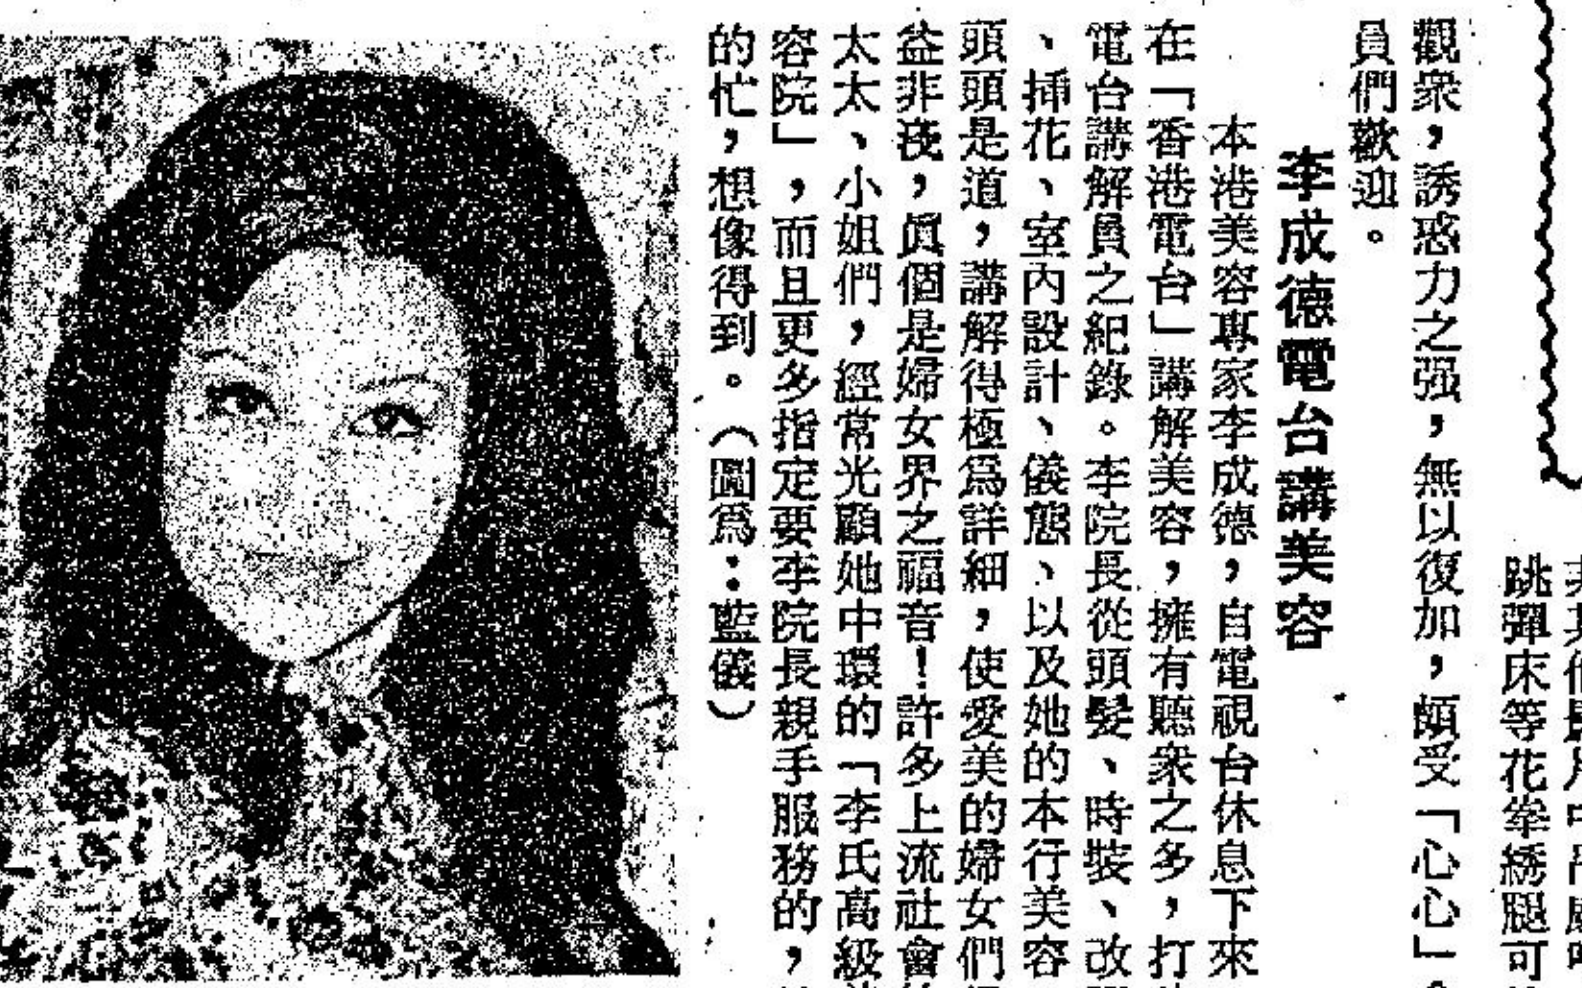 跳彈床等花拳綉腿可
觀衆，誘惑力之强，無以復加，頗受「心心」
員們歡迎。
李成德電台講美容
本港美容專家李成德，自電視台休息下來
在「香港電台」講解美容，擁有聽衆之多，打
電台講解員之紀錄。李院長從頭髮、時裝、改
、揷花、室內設計、儀態、以及她的本行美容
頭頭是道，講解得極爲詳細，使愛美的婦女們
益非淺，眞個是婦女界之福音！許多上流社會
太太、小姐們，經常光顧她中環的「李氏高級
容院」，而且更多指定要李院長親手服務的，
的忙，想像得到。（圖爲：藍儀）